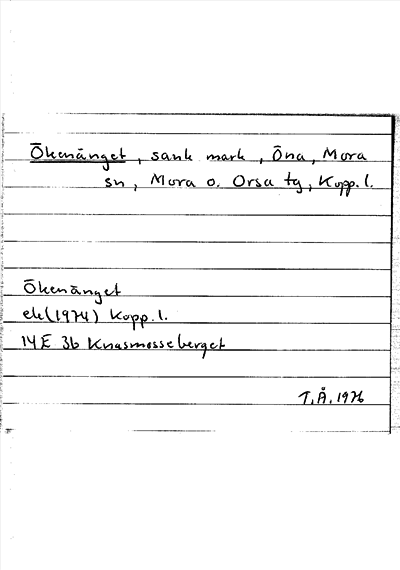 Ökenänget, sank mark, Öna, Mora
sn, Mora o. Orsa tg, Kopp. l.
Ökenänget
ek(1974) Kopp. l.
14E 3b Knasmosseberget
T.Å. 1976